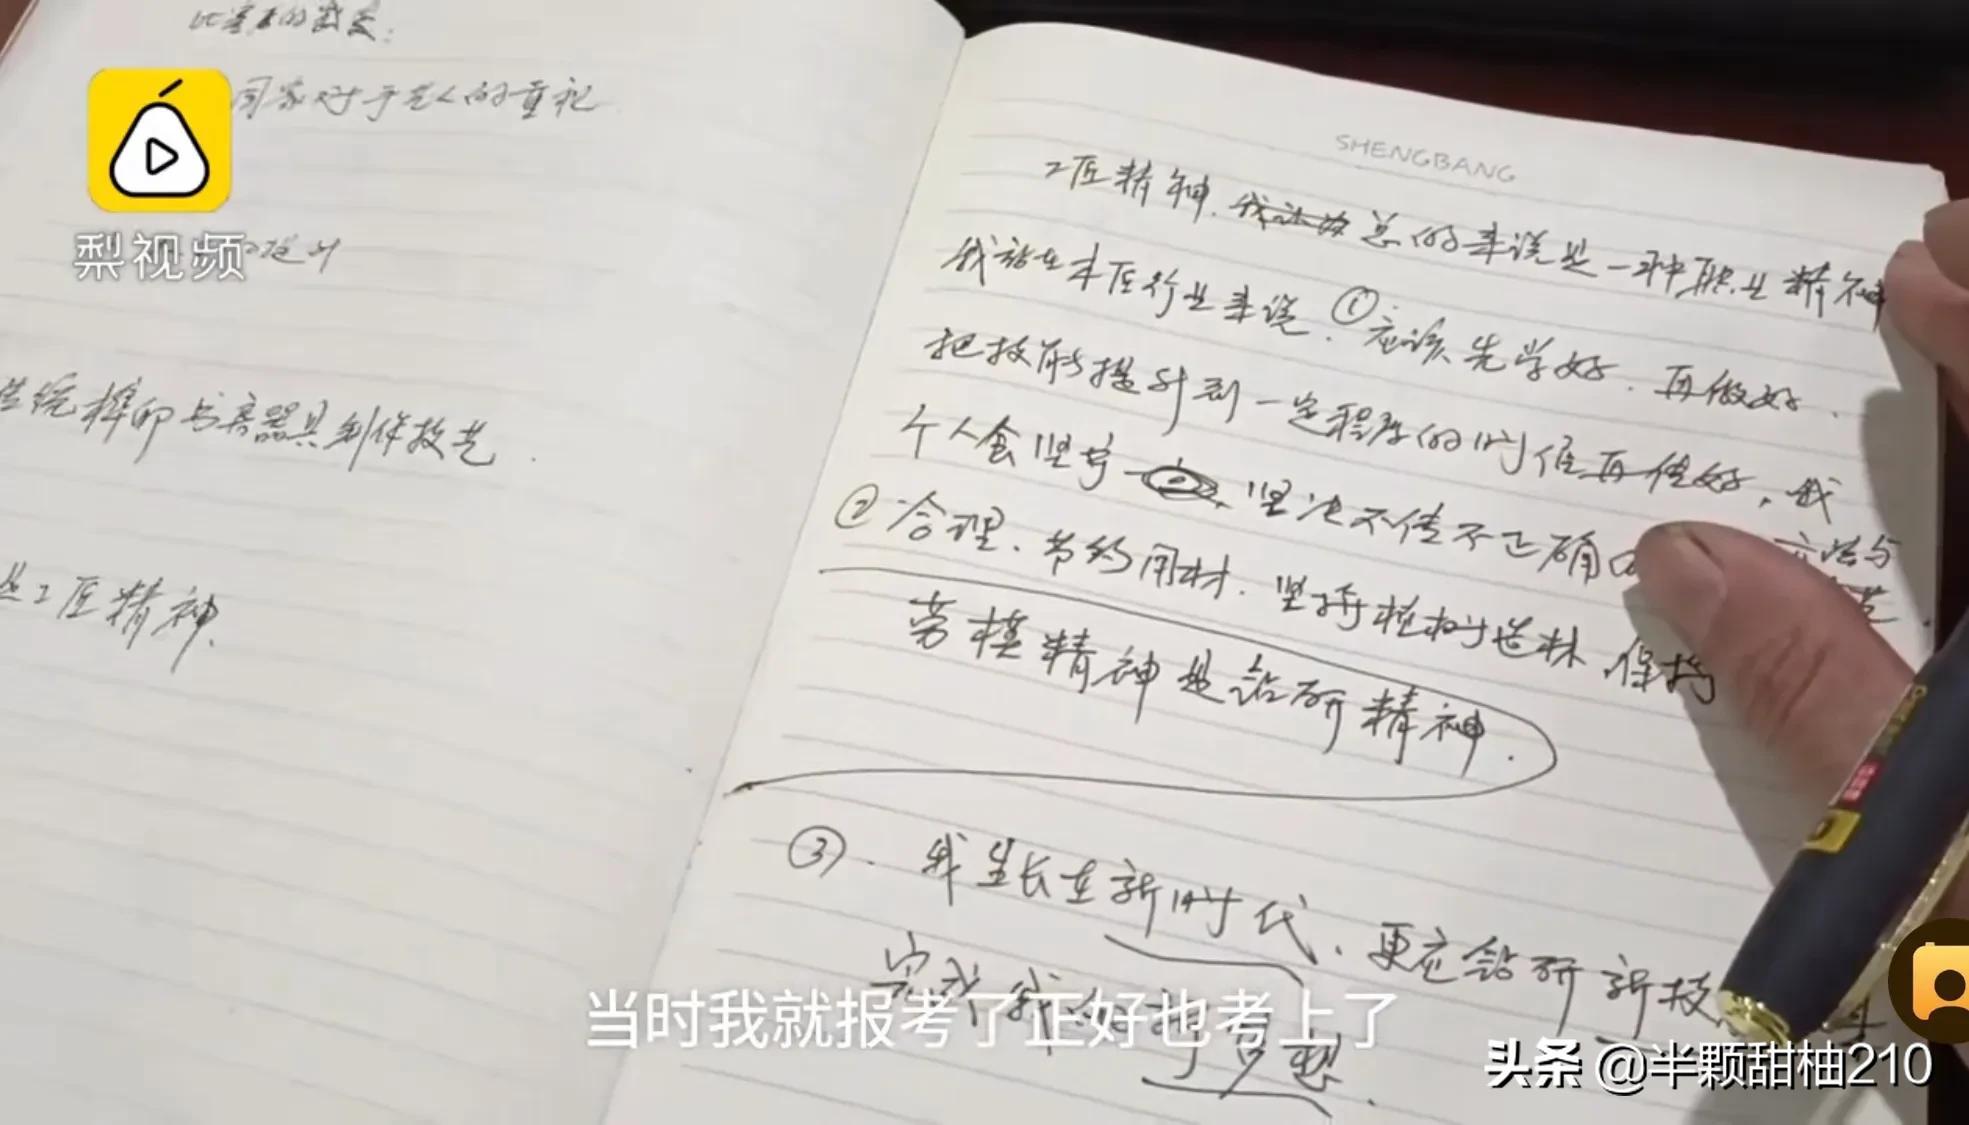 比赛者的
国家对于艺人的重视
梨视频
提升
传统榫卯与家器具制作技艺.
是工匠精神.
SHENGBANG
工匠精神. 总的来说是一种职业精神
我站在木匠行业来说. ①应该先学好. 再做好.
把技能提升到一定程度的时候再传好, 我
个人会坚守 坚决不传不正确
②合理. 节约用材. 坚持植树造林, 保持
劳模精神是钻研精神.
③. 我生长在新时代. 更应钻研新技
完成我的
当时我就报考了正好也考上了
头条 @半颗甜柚210